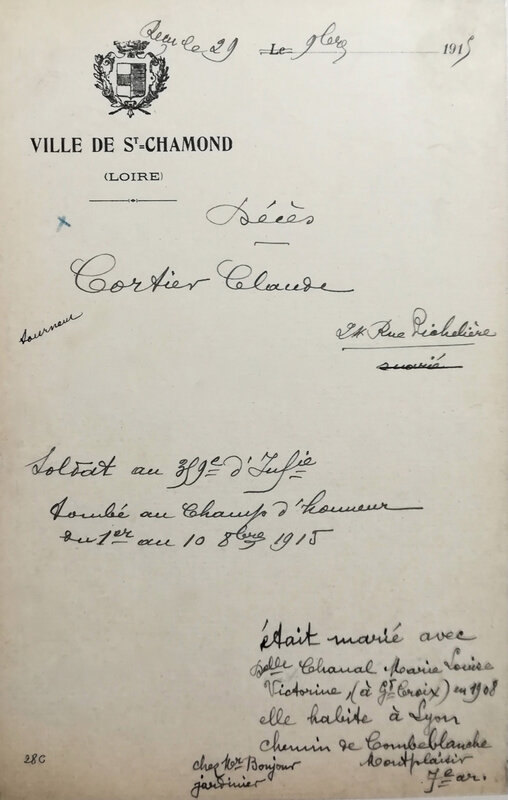 Reçu le 29 Le 9bre 1915
VILLE DE ST=CHAMOND
(LOIRE)
Décès
Cortier Claude
tourneur
24 Rue Richelière
marié
Soldat au 359e d'Infie
tombé au Champ d'honneur
du 1er au 10 8bre 1915
était marié avec
Delle Chanal Marie Louise
Victorine, (à Gd Croix) en 1908
elle habite à Lyon
chemin de Combeblanche
chez Mr Bonjour Montplaisir
jardinier 7e ar.
28C